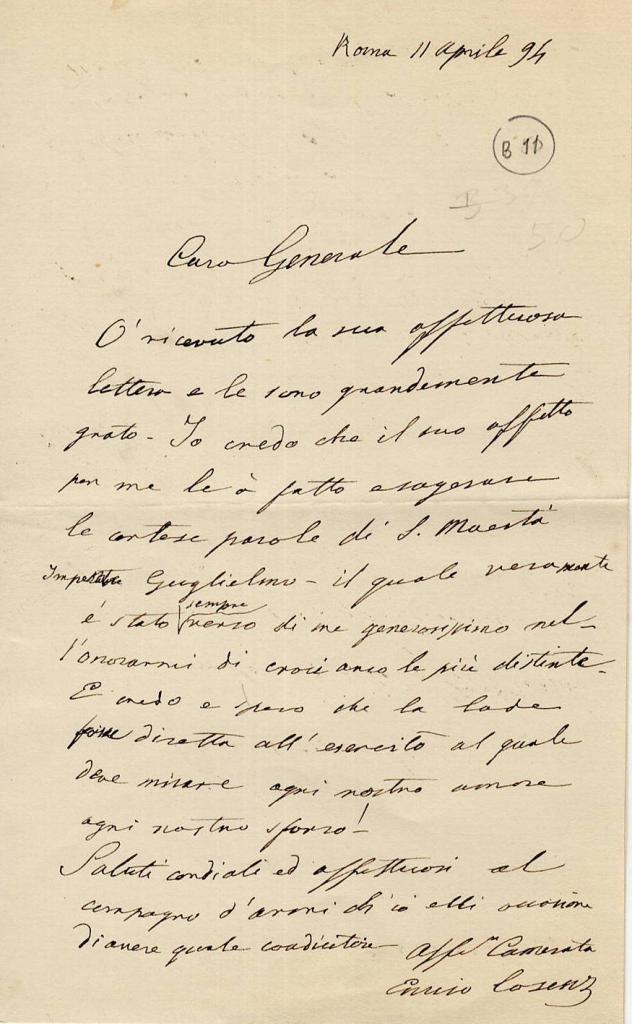 Roma 11 aprile 94
B 11
50
Caro Generale
O' ricevuto la sua affettuosa
lettera e le sono grandemente
grato - Io credo che il suo affetto
per me le à fatto esagerare
le cortese parole di S. Maestà
Imperatre Guglielmo - il quale veramente
è stato sempre verso di me generosissimo nel-
l'onorarmi di croci anco le più distinte -
E credo e spero che la lode
fosse diretta all'esercito al quale
deve mirare ogni nostro amore
ogni nostro sforzo! -
Saluti cordiali ed affettuosi al
compagno d'armi ch'io ebbi occasione
di avere quale coadiutore -
Aff.mo Camerata
Enrico Cosenz